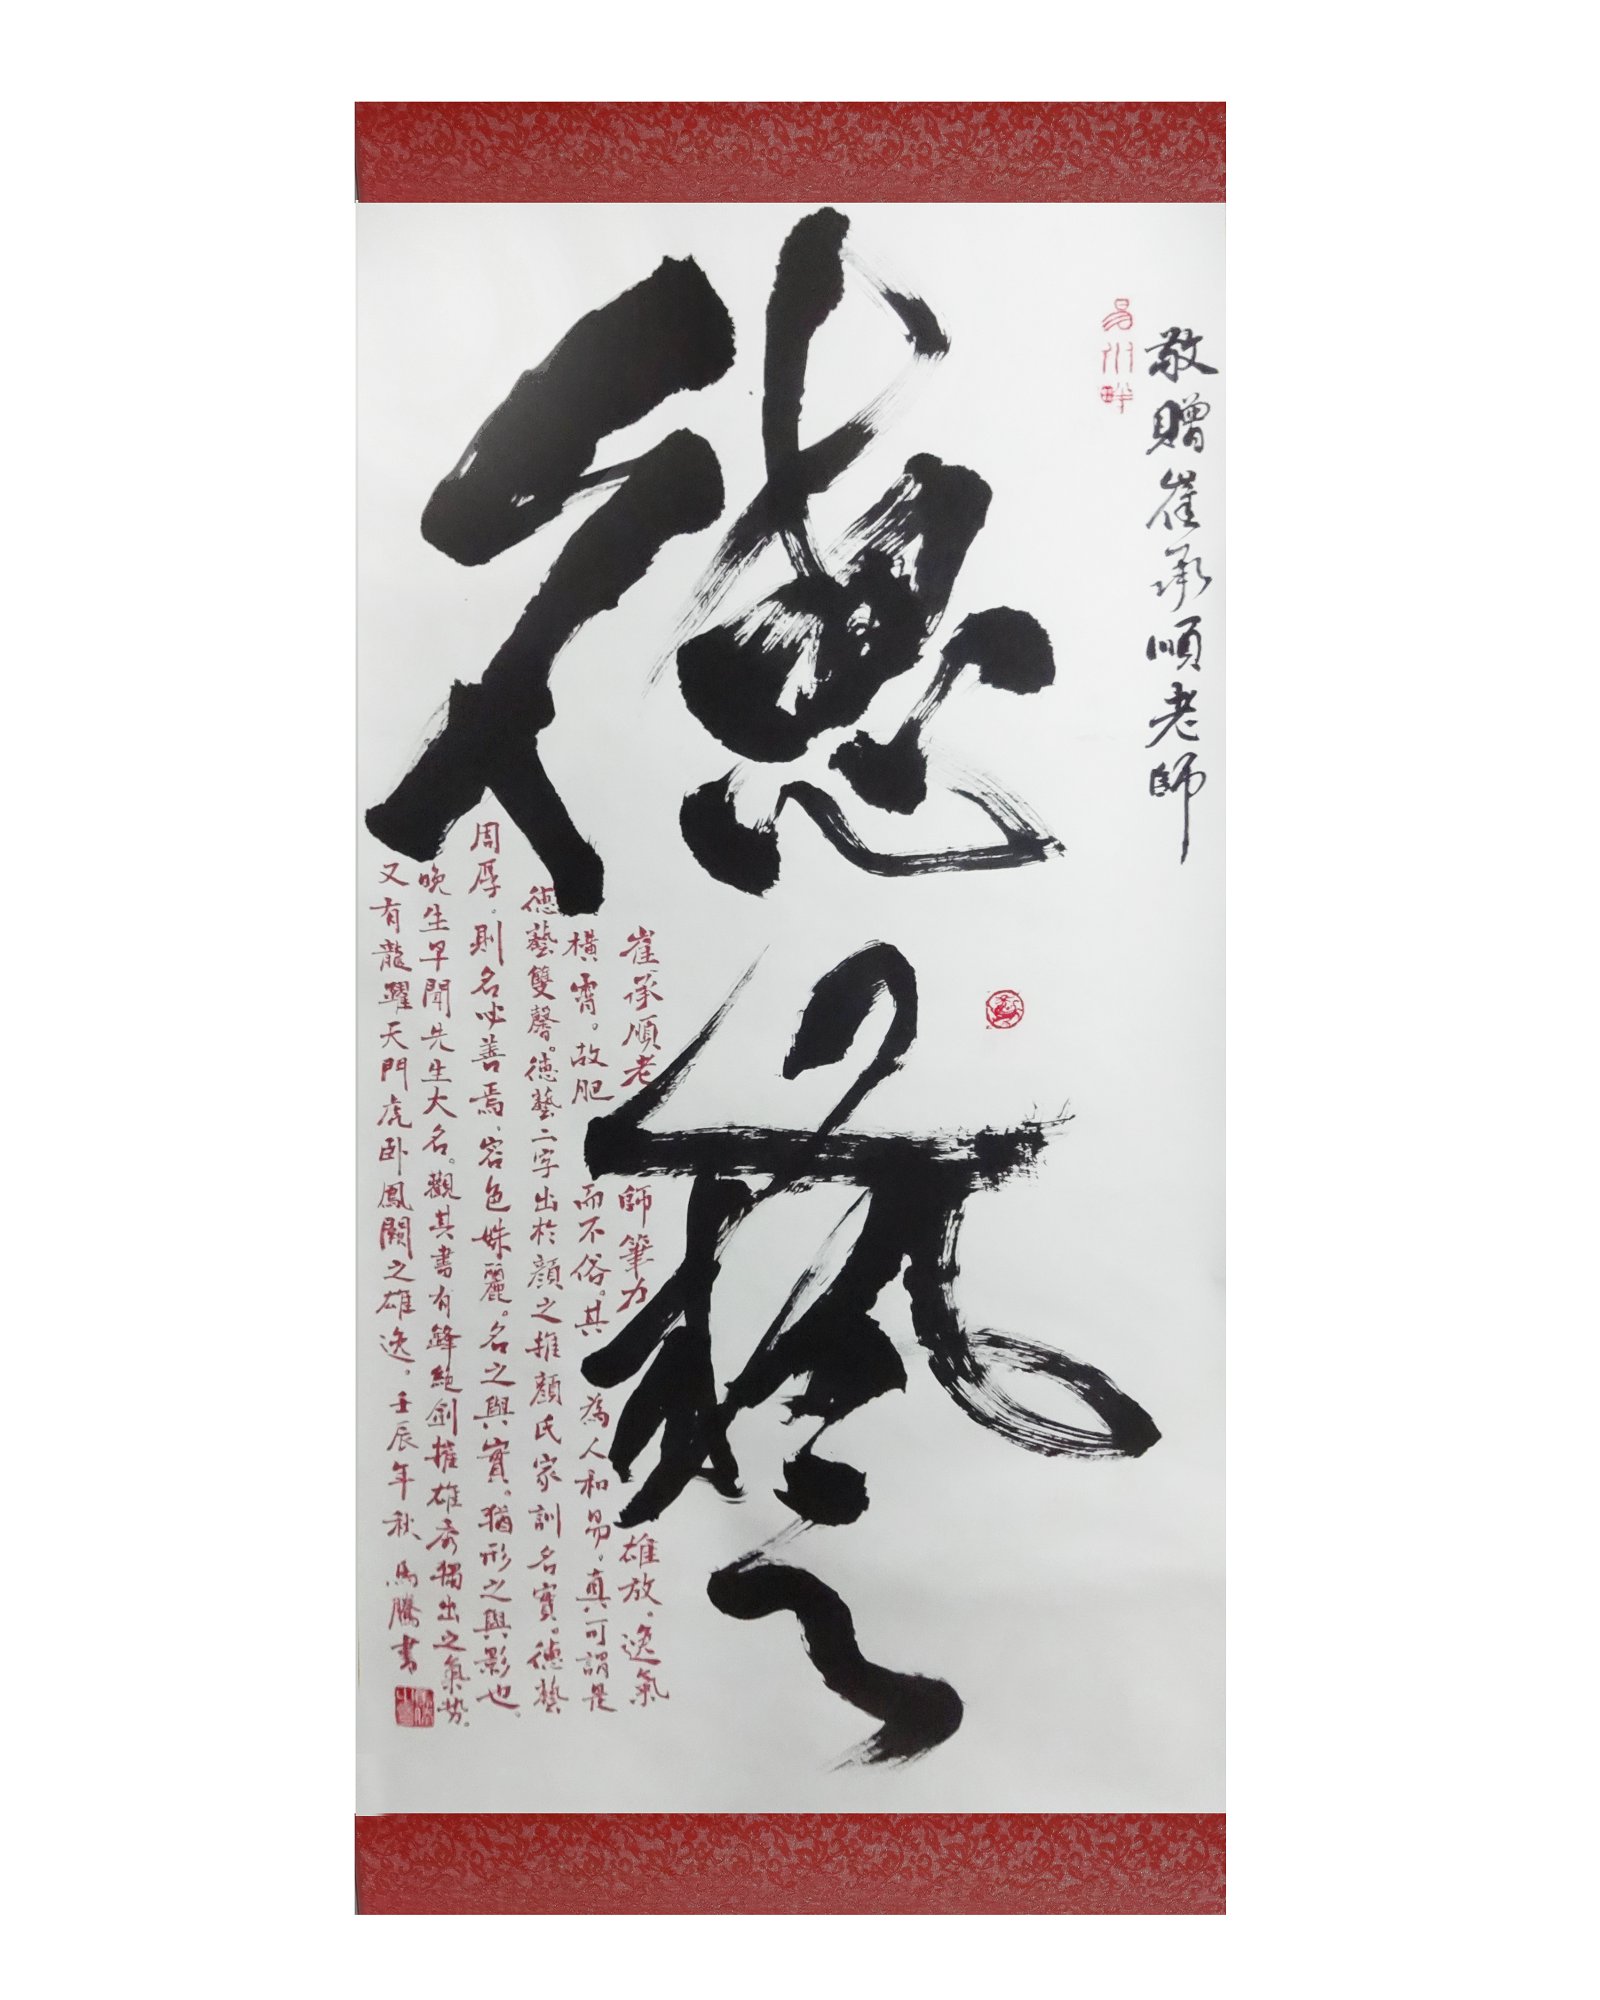 敬贈崔承順老師
易州畔
德藝
崔承順老師筆力雄放。逸氣
橫霄。故肥而不俗。其為人和易。真可謂是
德藝雙馨。德藝二字出於顏之推顏氏家訓名實。德藝
周厚。則名必善焉。容色姝麗。名之與實。猶形之與影也。
晚生早聞先生大名。觀其書有鋒絕劍摧雄秀獨出之氣势。
又有龍躍天門虎卧鳳闕之雄逸。壬辰年秋馬騰書